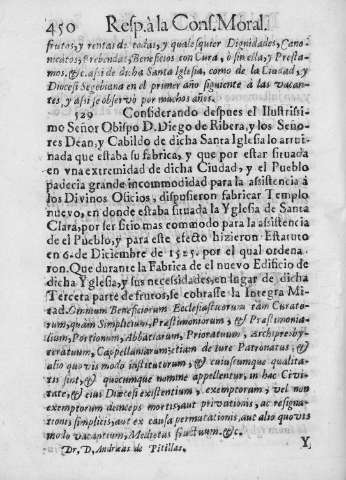 450 Resp. à la Conf. Moral.
frutos, y rentas de todas, y qualesquier Dignidades, Cano-
nicatos, Prebendas, Beneficios con Cura, ò sin ella, y Presta-
mos. &c. assi de dicha Santa Iglesia, como de la Ciudad, y
Diocesi Segobiana en el primer año siguiente à las vacan-
tes, y assi se observò por muchos años.
529 Considerando despues el Ilustrissi-
mo Señor Obispo D. Diego de Ribera, y los Seño-
res Dean, y Cabildo de dicha Santa Iglesia lo arrui-
nada que estaba su fabrica, y que por estar situada
en vna extremidad de dicha Ciudad, y el Pueblo
padecia grande incommodidad para la assistencia à
los Divinos Oficios, dispusieron fabricar Templo
nuevo, en donde estaba situada la Yglesia de Santa
Clara, por ser sitio mas commodo para la assistencia
de el Pueblo, y para este efecto hizieron Estatuto
en 6. de Diciembre de 1525. por el qual ordena
ron. Que durante la Fabrica de el nuevo Edificio de
dicha Yglesia, y sus necessidades, en lugar de dicha
Tercera parte de frutos, se cobrasse la Integra Mi-
tad. Omnium Beneficiorum Ecclesiasticorum tàm Curato-
rum, quàm Simplicium, Præstimoniorum, & Præstimonia-
lium, Portionum, Abbatiarum, Prioratuum, Archipresby-
teratuum, Cappellaniarum; etiam de iure Patronatus, &
alio quovis modo institutorum, & cuiuscumque qualita-
tis sint, & quocumque nomine appellentur, in hac Civi-
tate, & eius Diœcesi existentium, exemptorum, vel non
exemptorum deinceps mortis; aut privationis, ac resigna-
tionis simplicis, aut ex causa permutationis, aut alio quovis
modo vacantium, Medietas fructuum. &c.
Y
Dr. D. Andreas de Pitillas.